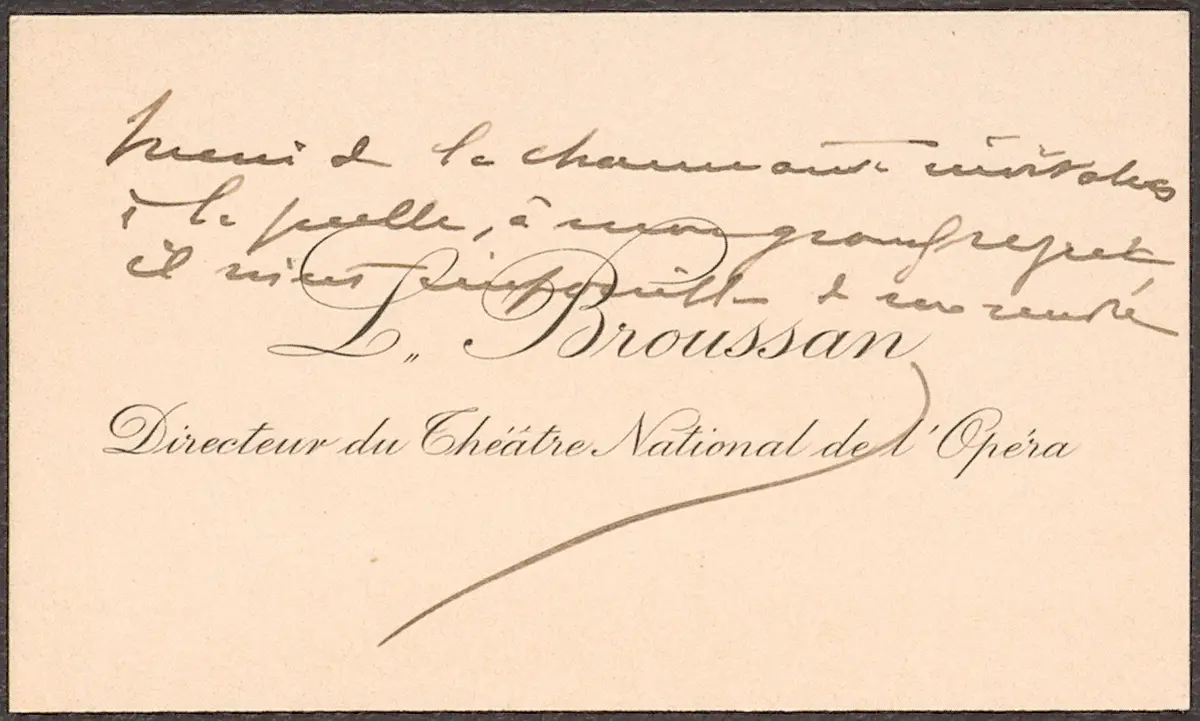 merci de la charmante invitation
à laquelle, à mon grand regret
il m'est impossible de me rendre
L. Broussan
Directeur du Théâtre National de l'Opéra